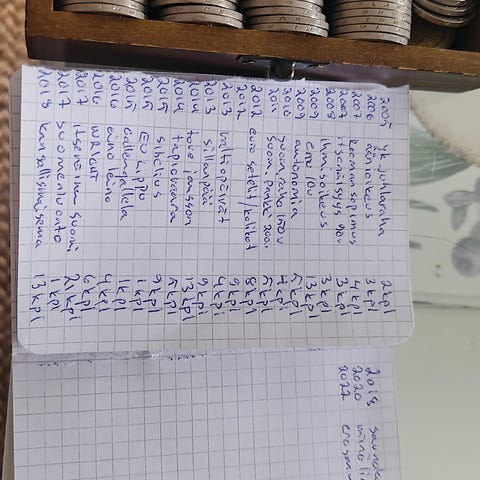 2005 yk juhlaraha 2 kpl
2006 äänioikeus 3 kpl
2007 rooman sopimus 4 kpl
2007 itsenäisyys 90v 3 kpl
2008 ihmisoikeus 3 kpl
2009 emu 10v 13 kpl
2009 autonomia 5 kpl
2010 suom. raha 150v 7 kpl
2011 suom. pankki 200v 5 kpl
2012 euro setelit/kolikot 8 kpl
2012 9 kpl
2013 valtiopäivät 4 kpl
2013 sillanpää 9 kpl
2014 tove jansson 13 kpl
2014 tapiovaara 5 kpl
2015 sibelius 9 kpl
2015 EU lippu 1 kpl
2015 gallengallela 1 kpl
2016 eino leino 4 kpl
2016 wright 6 kpl
2017 itsenäinen suomi 21 kpl
2017 suomen luonto 1 kpl
2018 kansallismaisema 13 kpl
2018 sauna
2020
2022 erasmu